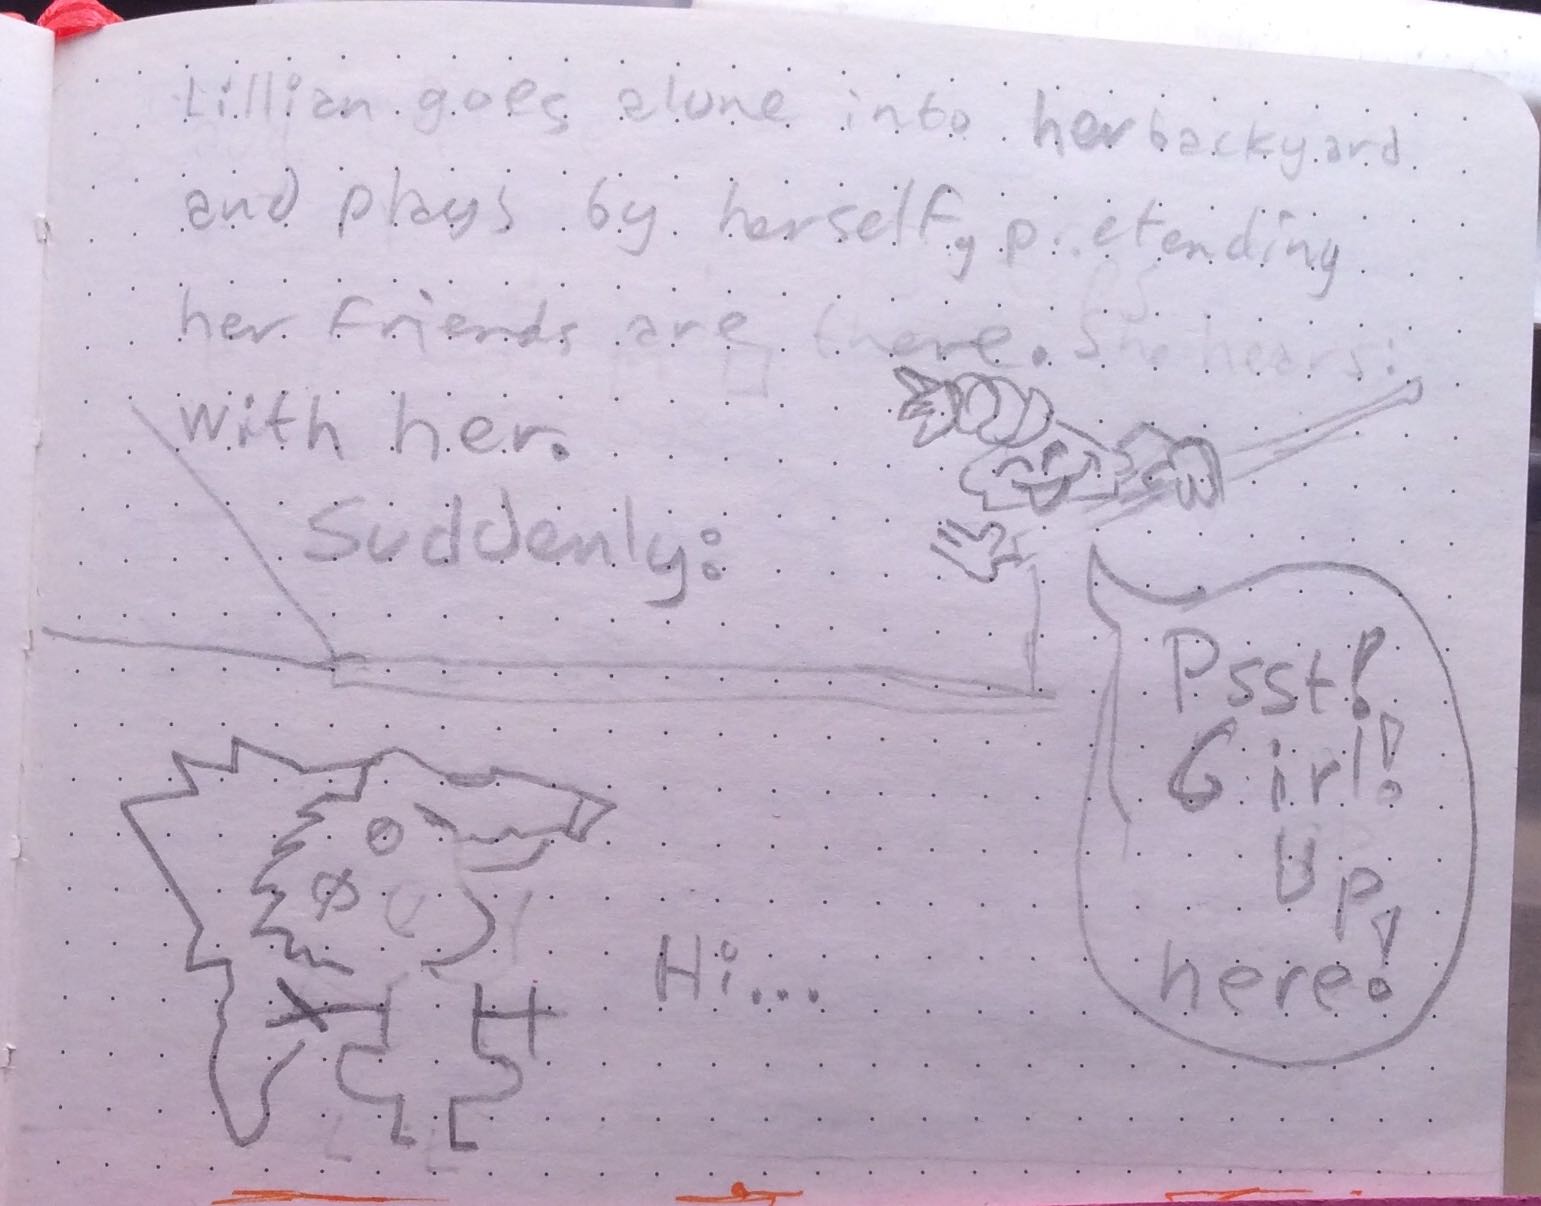 Lillian goes alone into her backyard
and plays by herself, pretending
her friends are there. She hears:
with her.
Suddenly:
Psst!
Girl!
Up
here!
Hi...